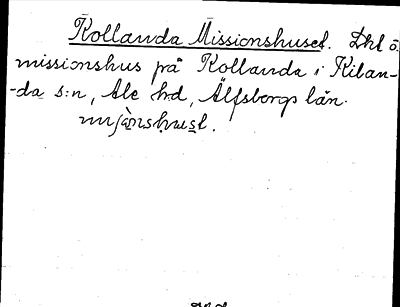 Kollanda Missionshuset. Lht o.
missionshus på Kollanda i Kilan-
-da s:n, Ale hd, Älfsborgs län.